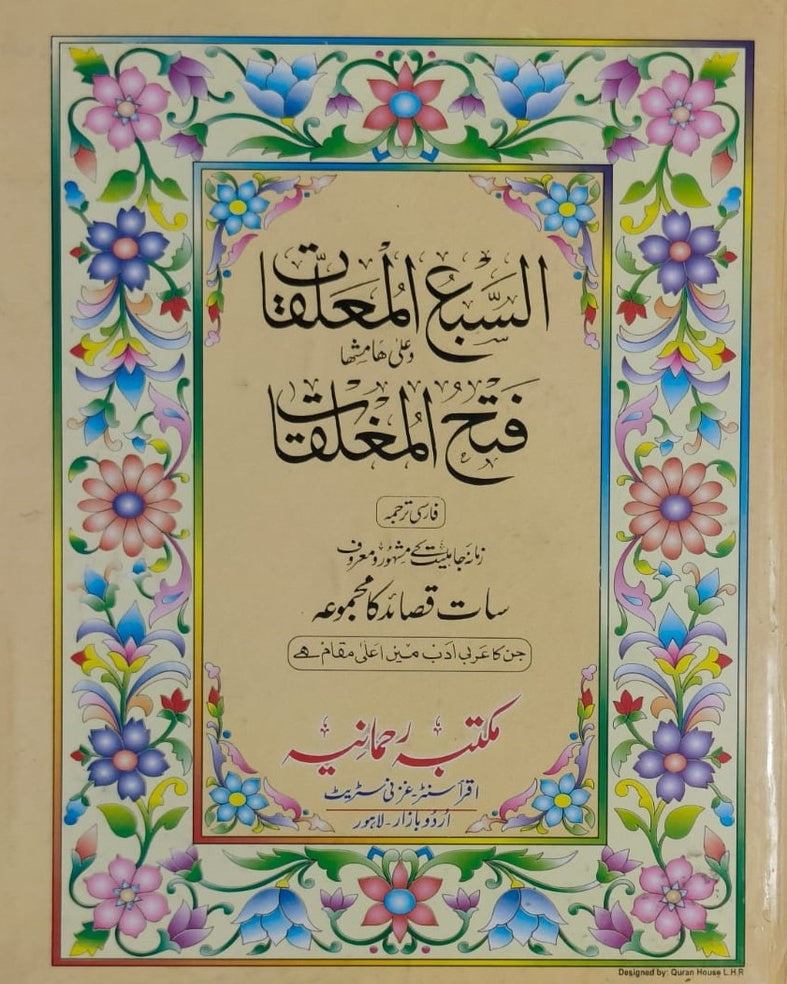 السَّبْعُ المُعَلَّقَات
وعلى هامشها
فَتحُ المُغلَقَات
فارسی ترجمہ
زمانہ جاہلیت کے مشہور و معروف
سات قصائد کا مجموعہ
جن کا عربی ادب میں اعلیٰ مقام ہے
مکتبہ رحمانیہ
اقرأ سنٹر غزنی سٹریٹ
اُردو بازار - لاہور
Designed by: Quran House L.H.R